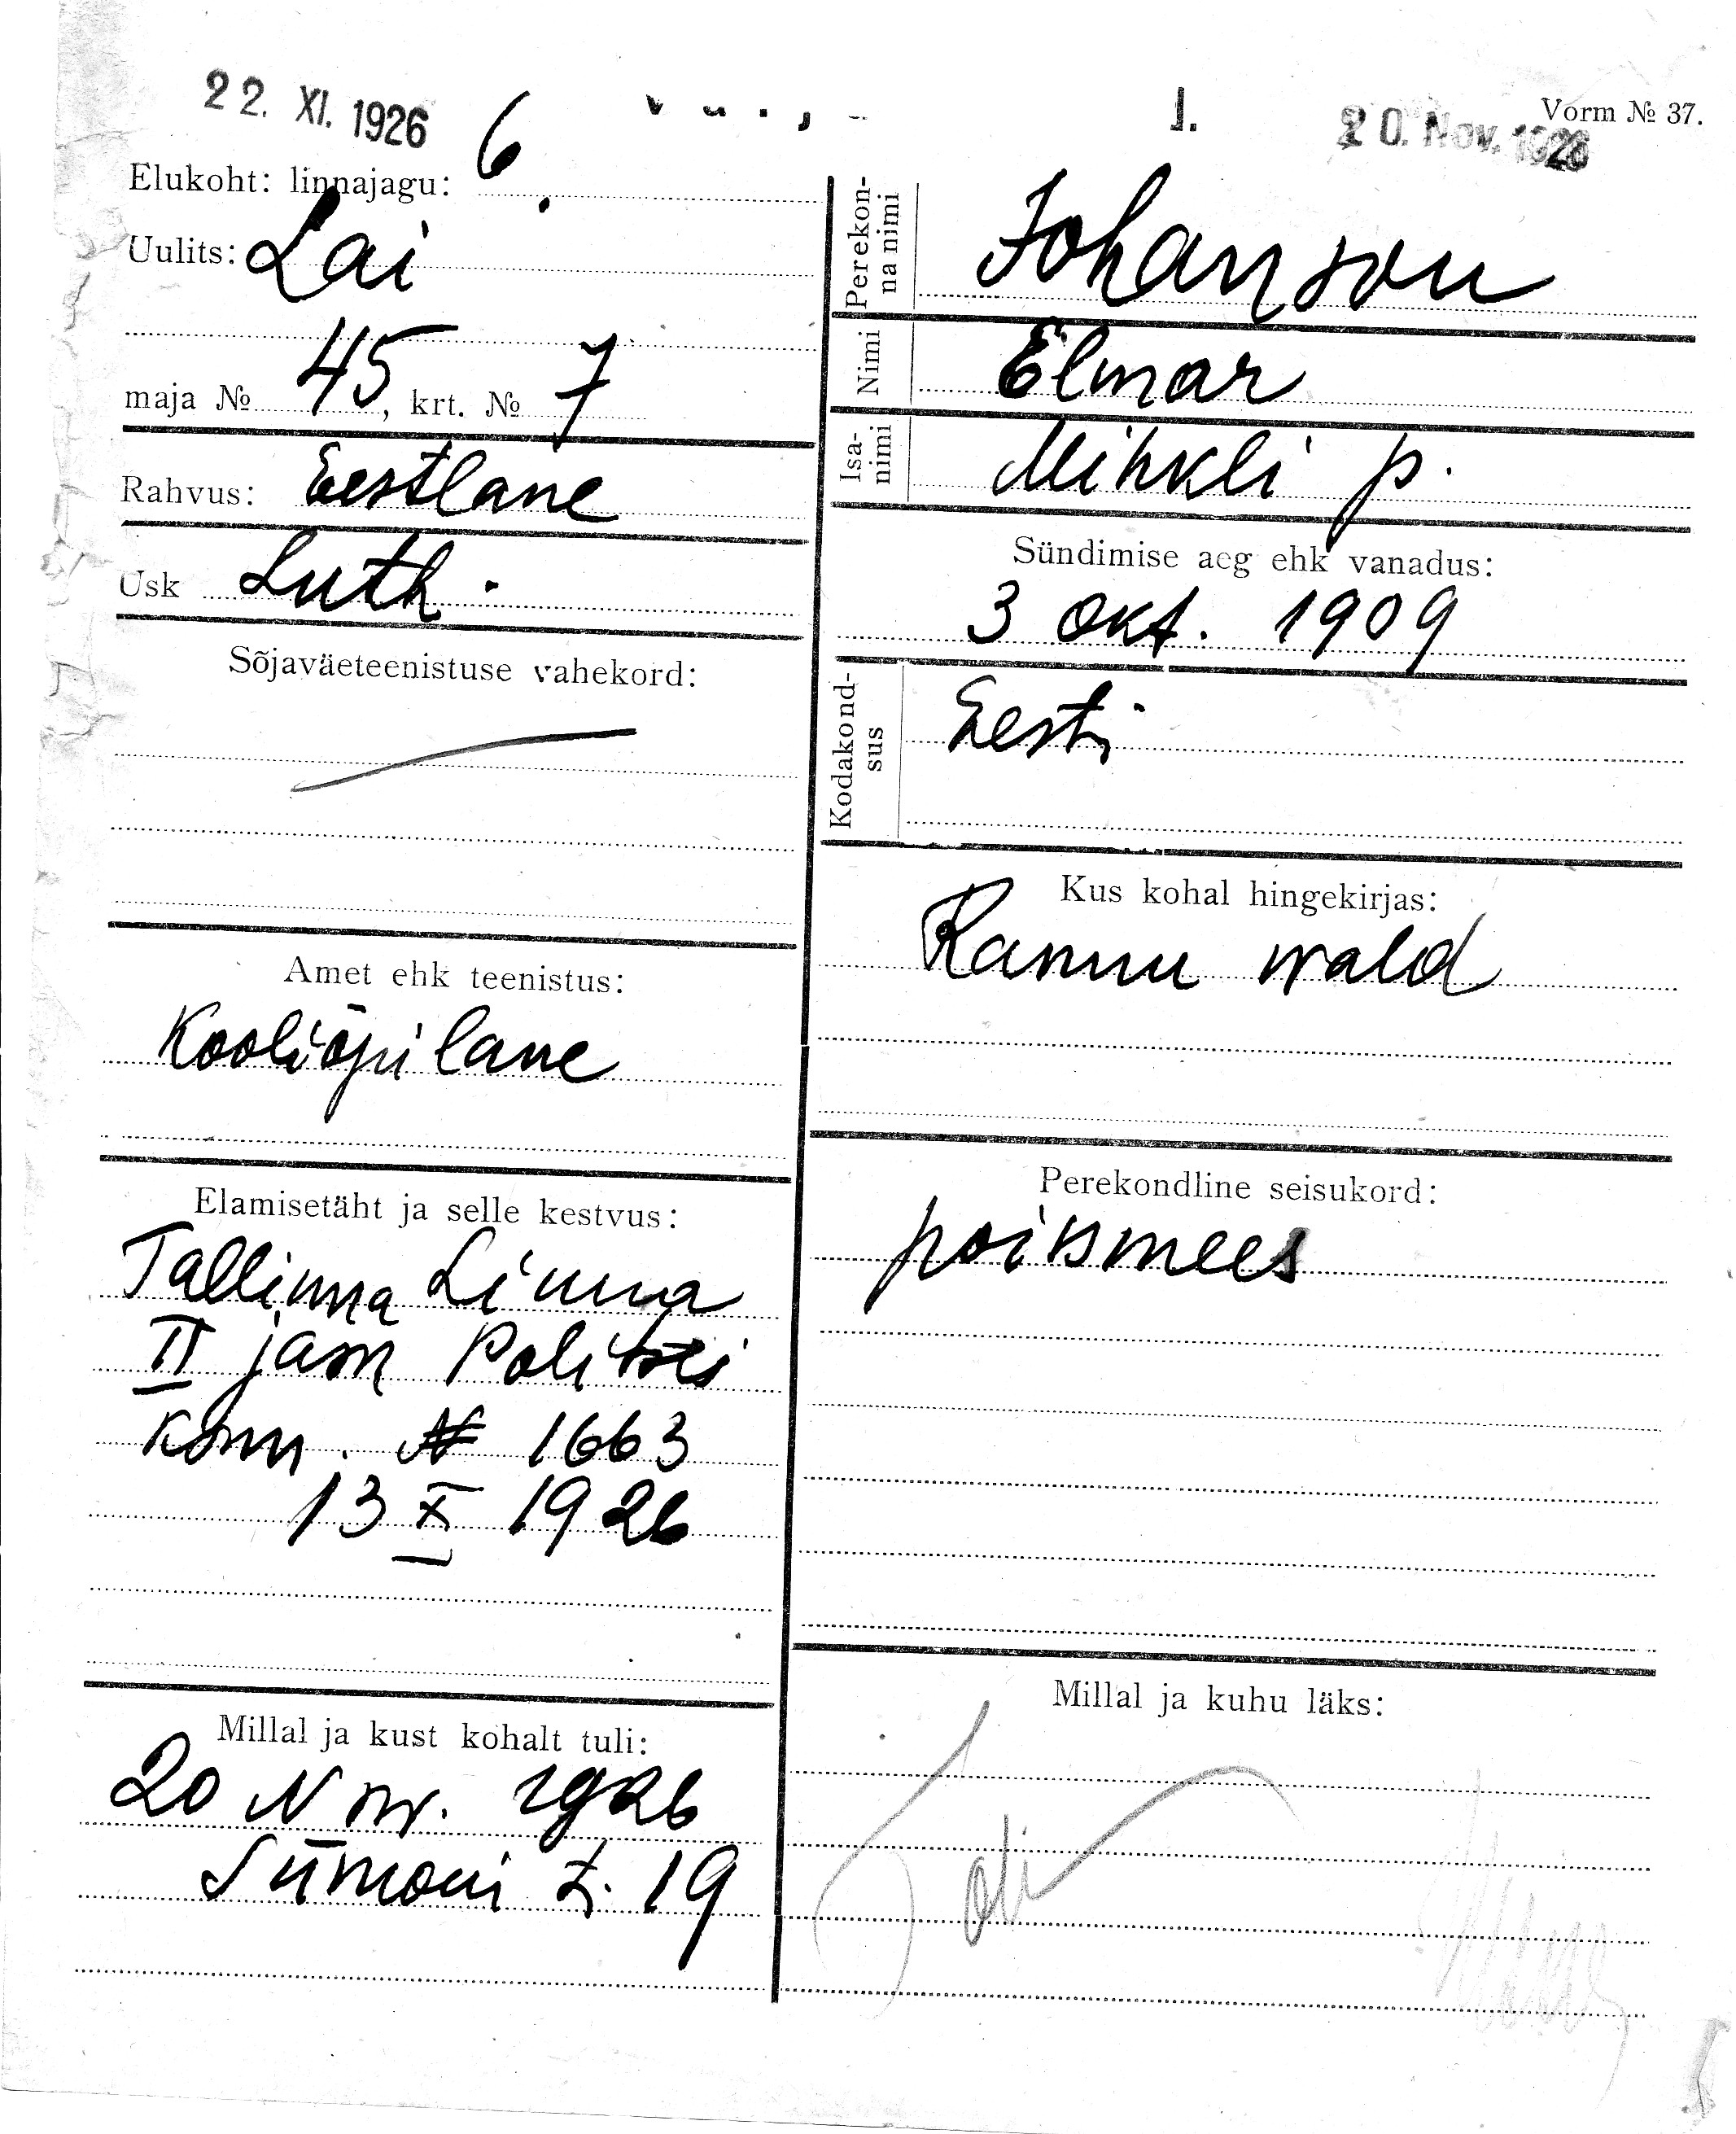 22. XI. 1926
20. Nov. 1926
Vorm № 37.
Elukoht: linnajagu: 6.
Uulits: Lai
maja № 45, krt. № 7
Rahvus: Eestlane
Usk Luth.
Sõjaväeteenistuse vahekord:
Amet ehk teenistus:
Kooliõpilane
Elamisetäht ja selle kestvus:
Tallinna Linna
II jaosk Politsei
Kom. № 1663
13 X 1926
Millal ja kust kohalt tuli:
20 Nov. 1926
Siimoni t. 19
Perekon-
na nimi
Johanson
Nimi Elmar
Isa-
nimi
Mihkli p.
Sündimise aeg ehk vanadus:
3 Okt. 1909
Kodakond-
sus
Eesti
Kus kohal hingekirjas:
Rannu wald
Perekondline seisukord:
poismees
Millal ja kuhu läks: